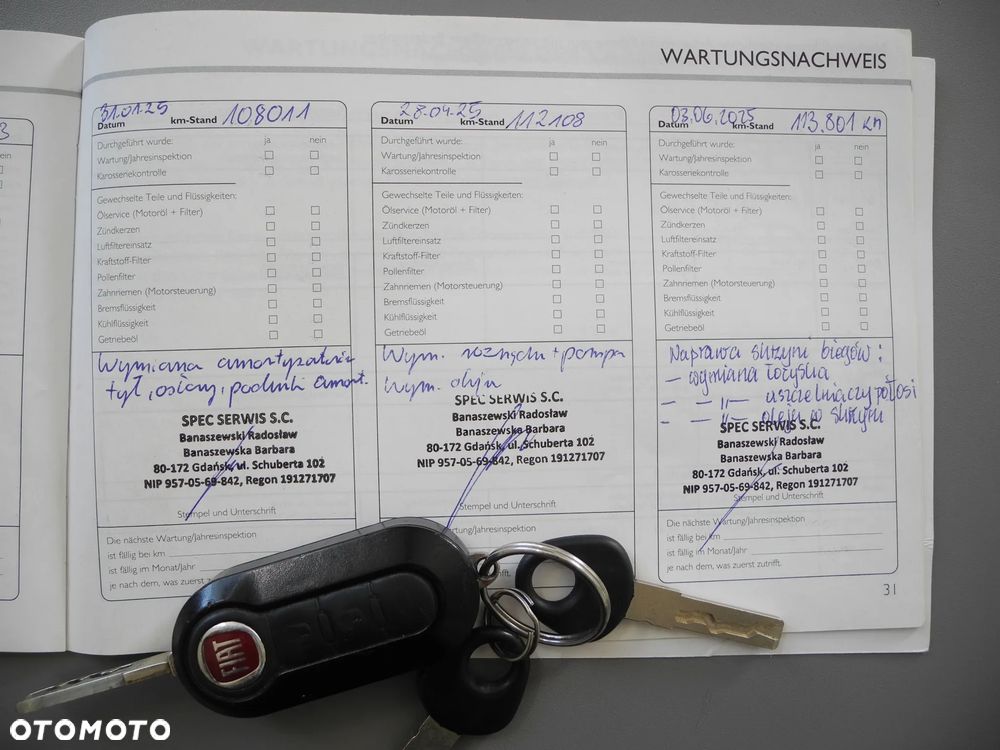 WARTUNGSNACHWEIS
31.01.25 108011
Datum km-Stand
Durchgeführt wurde: ja nein
Wartung/Jahresinspektion
Karosseriekontrolle
Gewechselte Teile und Flüssigkeiten:
Ölservice (Motoröl + Filter)
Zündkerzen
Luftfiltereinsatz
Kraftstoff-Filter
Pollenfilter
Zahnriemen (Motorsteuerung)
Bremsflüssigkeit
Kühlflüssigkeit
Getriebeöl
Wymiana amortyzatorów
tył, osłony, poduszki amort.
SPEC SERWIS S.C.
Banaszewski Radosław
Banaszewska Barbara
80-172 Gdańsk, ul. Schuberta 102
NIP 957-05-69-842, Regon 191271707
Stempel und Unterschrift
Die nächste Wartung/Jahresinspektion
ist fällig bei km
ist fällig im Monat/Jahr
je nach dem, was zuerst zutrifft.
28-04-25 112108
Datum km-Stand
Durchgeführt wurde: ja nein
Wartung/Jahresinspektion
Karosseriekontrolle
Gewechselte Teile und Flüssigkeiten:
Ölservice (Motoröl + Filter)
Zündkerzen
Luftfiltereinsatz
Kraftstoff-Filter
Pollenfilter
Zahnriemen (Motorsteuerung)
Bremsflüssigkeit
Kühlflüssigkeit
Getriebeöl
Wym. rozrządu + pompa
Wym. oleju
SPEC SERWIS S.C.
Banaszewski Radosław
Banaszewska Barbara
80-172 Gdańsk, ul. Schuberta 102
NIP 957-05-69-842, Regon 191271707
Stempel und Unterschrift
Wartung/Jahresinspektion
03.06.2025 113.801 km
Datum km-Stand
Durchgeführt wurde: ja nein
Wartung/Jahresinspektion
Karosseriekontrolle
Gewechselte Teile und Flüssigkeiten:
Ölservice (Motoröl + Filter)
Zündkerzen
Luftfiltereinsatz
Kraftstoff-Filter
Pollenfilter
Zahnriemen (Motorsteuerung)
Bremsflüssigkeit
Kühlflüssigkeit
Getriebeöl
Naprawa skrzyni biegów:
- wymiana łożyska
- -„- uszczelniaczy półosi
- -„- oleju w skrzyni
SPEC SERWIS S.C.
Banaszewski Radosław
Banaszewska Barbara
80-172 Gdańsk, ul. Schuberta 102
NIP 957-05-69-842, Regon 191271707
Stempel und Unterschrift
Die nächste Wartung/Jahresinspektion
ist fällig bei km
ist fällig im Monat/Jahr
je nach dem, was zuerst zutrifft.
31
FIAT
OTOMOTO